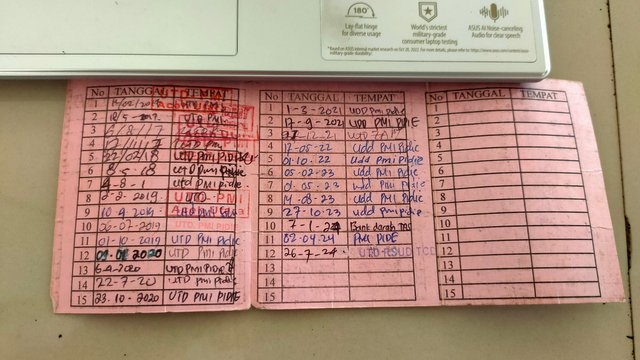 180°
Lay-flat hinge
for diverse usage
World's strictest
military-grade
consumer laptop testing
ASUS AI Noise-canceling
Audio for clear speech
NO TANGGAL TEMPAT
1
2 UTD PMI
3 6/8/17
4 17/11/17 UTD PMI
5 22/02/18 UTD PMI PIDIE
6 8-5-18 UTD PMI Pidie
7 4-8-1 UTD PMI Pidie
8 2-2-2019 UTD-PMI
9 10-4-2019
10 26-07-2019
11 01-10-2019 UTD PMI Pidie
12 2020 UTD PMI Pidie
13 6-4-2020 UTD PMI PIDIE
14 22-7-20 UTD PMI PIDIE
15 23-10-2020 UTD PMI PIDIE
NO TANGGAL TEMPAT
1 1-3-2021 UDD PMI Pidie
2 17-9-2021 UDD PMI PIDIE
3 27-12-21
4 17-05-22 Udd PMI PIDIE
5 01-10-22 Udd PMI Pidie
6 05-02-23 Udd PMI Pidie
7 01-05-23 Udd PMI Pidie
8 14-08-23 Udd PMI Pidie
9 27-10-23 Udd PMI Pidie
10 7-1-24 Bank darah
11 02-04-24 PMI PIDIE
12 26-7-24 UTD RSUD TCD
13
14
15
NO TANGGAL TEMPAT
1
2
3
4
5
6
7
8
9
10
11
12
13
14
15